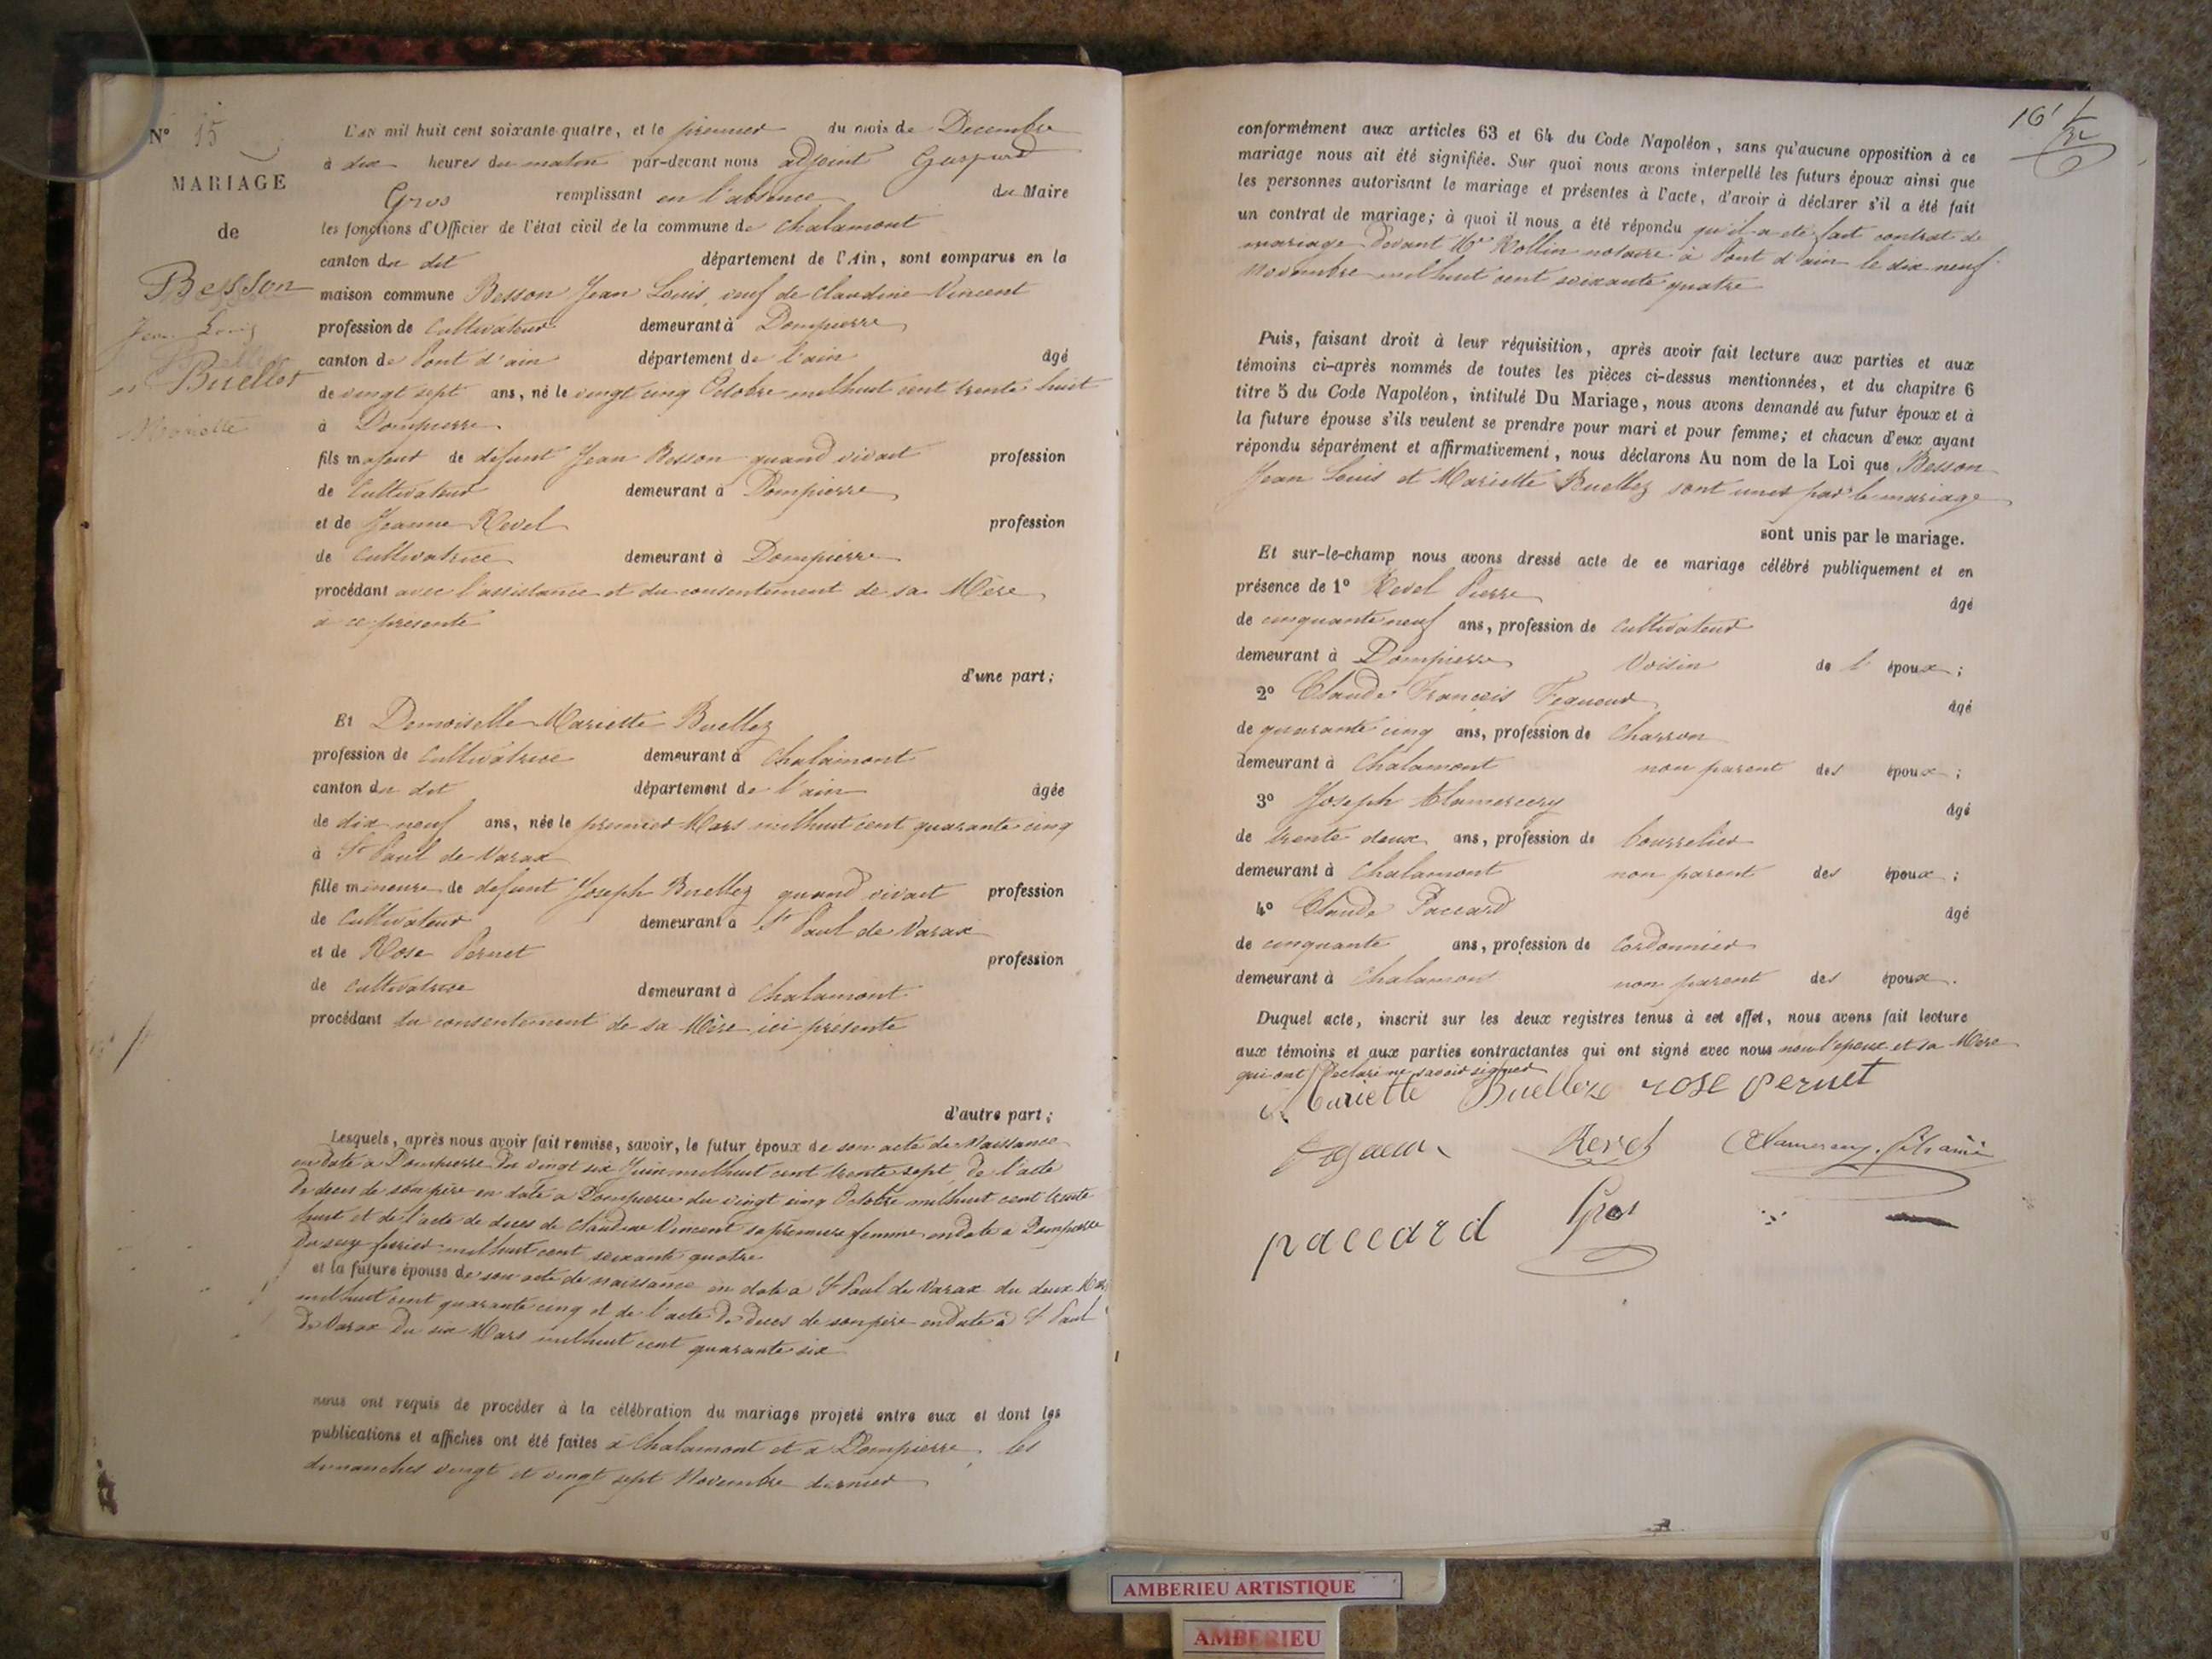 N° 15
MARIAGE
de
Besson
Jean Louis
et Buellet
Mariette
L'an mil huit cent soixante quatre, et le premier du mois de Decembre
à dix heures du matin par-devant nous adjoint Gaspard
Gros remplissant en l'absence du Maire
les fonctions d'Officier de l'état civil de la commune de Chalamont
canton du dit département de l'Ain, sont comparus en la
maison commune Besson Jean Louis, veuf de Claudine Vincent
profession de Cultivateur demeurant à Dompierre
canton de Pont d'ain département de l'ain âgé
de vingt sept ans, né le vingt cinq Octobre milhuit cent trente huit
à Dompierre
fils majeur de defunt Jean Besson quand vivait profession
de Cultivateur demeurant à Dompierre
et de Jeanne Revel profession
de Cultivatrice demeurant à Dompierre
procédant avec l'assistance et du consentement de sa Mère
à ce présente
d'une part;
Et Demoiselle Mariette Buellez
profession de Cultivatrice demeurant à Chalamont
canton du dit département de l'ain âgée
de dix neuf ans, née le premier Mars milhuit cent quarante cinq
à St Paul de Varax
fille mineure de defunt Joseph Buellez quand vivait profession
de Cultivateur demeurant à St Paul de Varax
et de Rose Pernet profession
de Cultivatrice demeurant à Chalamont
procédant du consentement de sa Mère ici présente
d'autre part;
Lesquels, après nous avoir fait remise, savoir, le futur époux de son acte de Naissance
en date a Dompierre du vingt six Juin milhuit cent trente sept, de l'acte
de deces de son père en date a Dompierre du vingt cinq Octobre milhuit cent trente
huit et de l'acte de deces de Claudine Vincent sa premiere femme en date a Dompierre
du seize fevrier milhuit cent soixante quatre
et la future épouse de son acte de naissance en date a St Paul de Varax du deux Mars
milhuit cent quarante cinq et de l'acte de deces de son père en date à St Paul
de Varax du six Mars milhuit cent quarante six
nous ont requis de procéder à la célébration du mariage projeté entre eux et dont les
publications et affiches ont été faites à Chalamont et a Dompierre, les
dimanches vingt et vingt sept Novembre dernier
16
conformément aux articles 63 et 64 du Code Napoléon, sans qu'aucune opposition à ce
mariage nous ait été signifiée. Sur quoi nous avons interpellé les futurs époux ainsi que
les personnes autorisant le mariage et présentes à l'acte, d'avoir à déclarer s'il a été fait
un contrat de mariage; à quoi il nous a été répondu qu'il a été fait contrat de
mariage devant Me Rollin notaire à Pont d'ain le dix neuf
Novembre milhuit cent soixante quatre
Puis, faisant droit à leur réquisition, après avoir fait lecture aux parties et aux
témoins ci-après nommés de toutes les pièces ci-dessus mentionnées, et du chapitre 6
titre 5 du Code Napoléon, intitulé Du Mariage, nous avons demandé au futur époux et à
la future épouse s'ils veulent se prendre pour mari et pour femme; et chacun d'eux ayant
répondu séparément et affirmativement, nous déclarons Au nom de la Loi que Besson
Jean Louis et Mariette Buellez sont unis par le mariage
sont unis par le mariage.
Et sur-le-champ nous avons dressé acte de ce mariage célébré publiquement et en
présence de 1° Revel Pierre âgé
de cinquante neuf ans, profession de Cultivateur
demeurant à Dompierre Voisin de l' époux;
2° Claude François âgé
de quarante cinq ans, profession de Charron
demeurant à Chalamont non parent des époux;
3° Joseph Clamercery âgé
de trente deux ans, profession de bourrelier
demeurant à Chalamont non parent des époux;
4° Claude Paccard âgé
de cinquante ans, profession de Cordonnier
demeurant à Chalamont non parent des époux.
Duquel acte, inscrit sur les deux registres tenus à cet effet, nous avons fait lecture
aux témoins et aux parties contractantes qui ont signé avec nous non l'epoux et sa Mère
qui ont Declaré ne savoir signer
Mariette Buelleze rose pernet
Revel
paccard Gros
AMBERIEU ARTISTIQUE
AMBERIEU